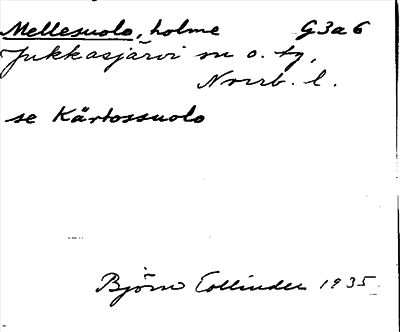 Mellesuolo, holme G3a6
Jukkasjärvi sn o. tg,
Norrb. l.
se Kärtossuolo
Björn Collinder 1935